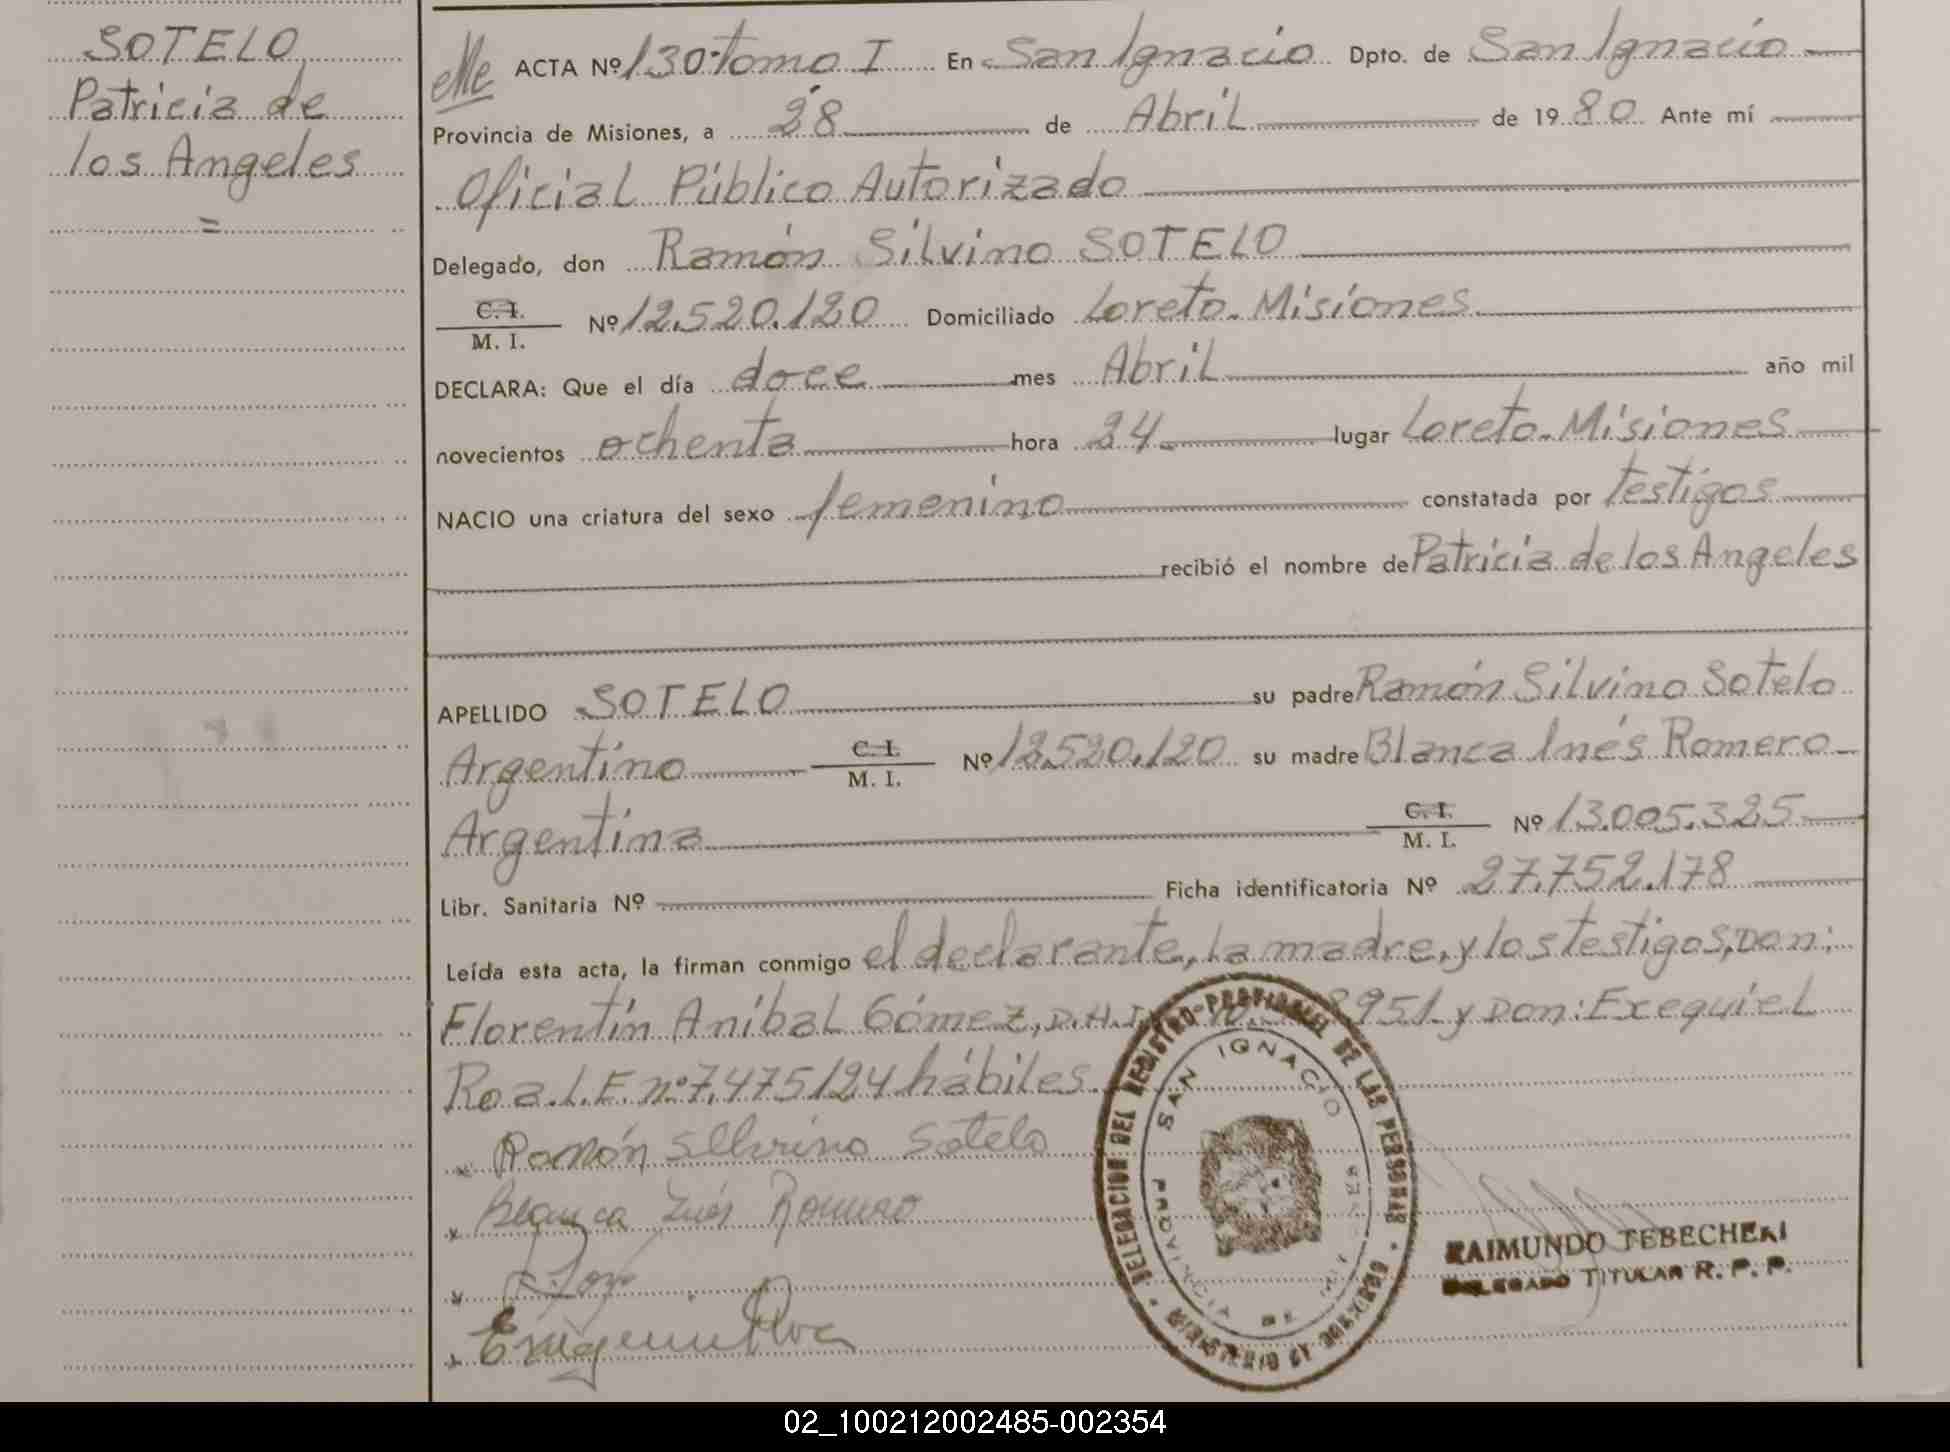 SOTELO
Patricia de
los Angeles
=
ACTA Nº 130-tomo I En San Ignacio Dpto. de San Ignacio
Provincia de Misiones, a 28 de Abril de 1980 Ante mí
Oficial Público Autorizado
Delegado, don Ramón Silvino SOTELO
C. I.
M. I. Nº 12.520.120 Domiciliado Loreto-Misiones
DECLARA: Que el día doce mes Abril año mil
novecientos ochenta hora 24 lugar Loreto-Misiones
NACIO una criatura del sexo femenino constatada por testigos
recibió el nombre de Patricia de los Angeles
APELLIDO SOTELO su padre Ramón Silvino Sotelo
Argentino C. I. M. I. Nº 12.520.120 su madre Blanca Inés Romero
Argentina C. I. M. I. Nº 13.005.325
Libr. Sanitaria Nº Ficha identificatoria Nº 27.752.178
Leída esta acta, la firman conmigo el declarante, la madre, y los testigos, Don:
Florentín Aníbal Gómez, D.N.I. 951 y Don: Exequiel
Roa. L.E. nº 7.475124 hábiles.
Ramón Silvino Sotelo
Blanca Inés Romero
DELEGACION DEL REGISTRO PROVINCIAL DE LAS PERSONAS
SAN IGNACIO
PROVINCIA DE
RAIMUNDO TEBECHERI
DELEGADO TITULAR R. P. P.
02_100212002485-002354